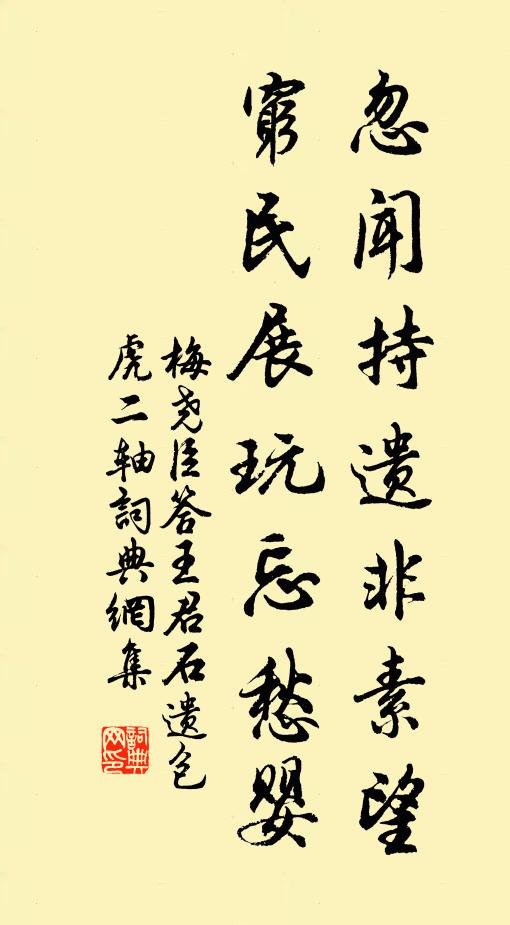 忽闻持遗非素望
窮民展玩忘愁嬰
梅尧臣答王君石遗包
虎二轴詞典網集
詞典网印